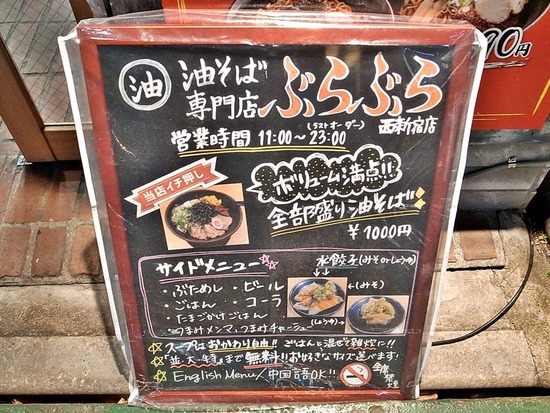 90円
油 油そば
専門店 ぶらぶら
西新宿店
(ラストオーダー)
営業時間 11:00〜23:00
当店イチ押し
ボリューム満点!!
全部盛り油そば
￥1000円
サイドメニュー
・ぶためし ・ビール
・ごはん ・コーラ
・たまごかけごはん
・つまみメンマ、つまみチャーシュー
水餃子(みそorしょうゆ)
(みそ)
(しょうゆ)
スープはおかわり自由!! ごはんと混ぜて雑炊に!!
並・大・特まで無料!! お好きなサイズ選べます!
English Menu/中国語OK!!
全席禁煙